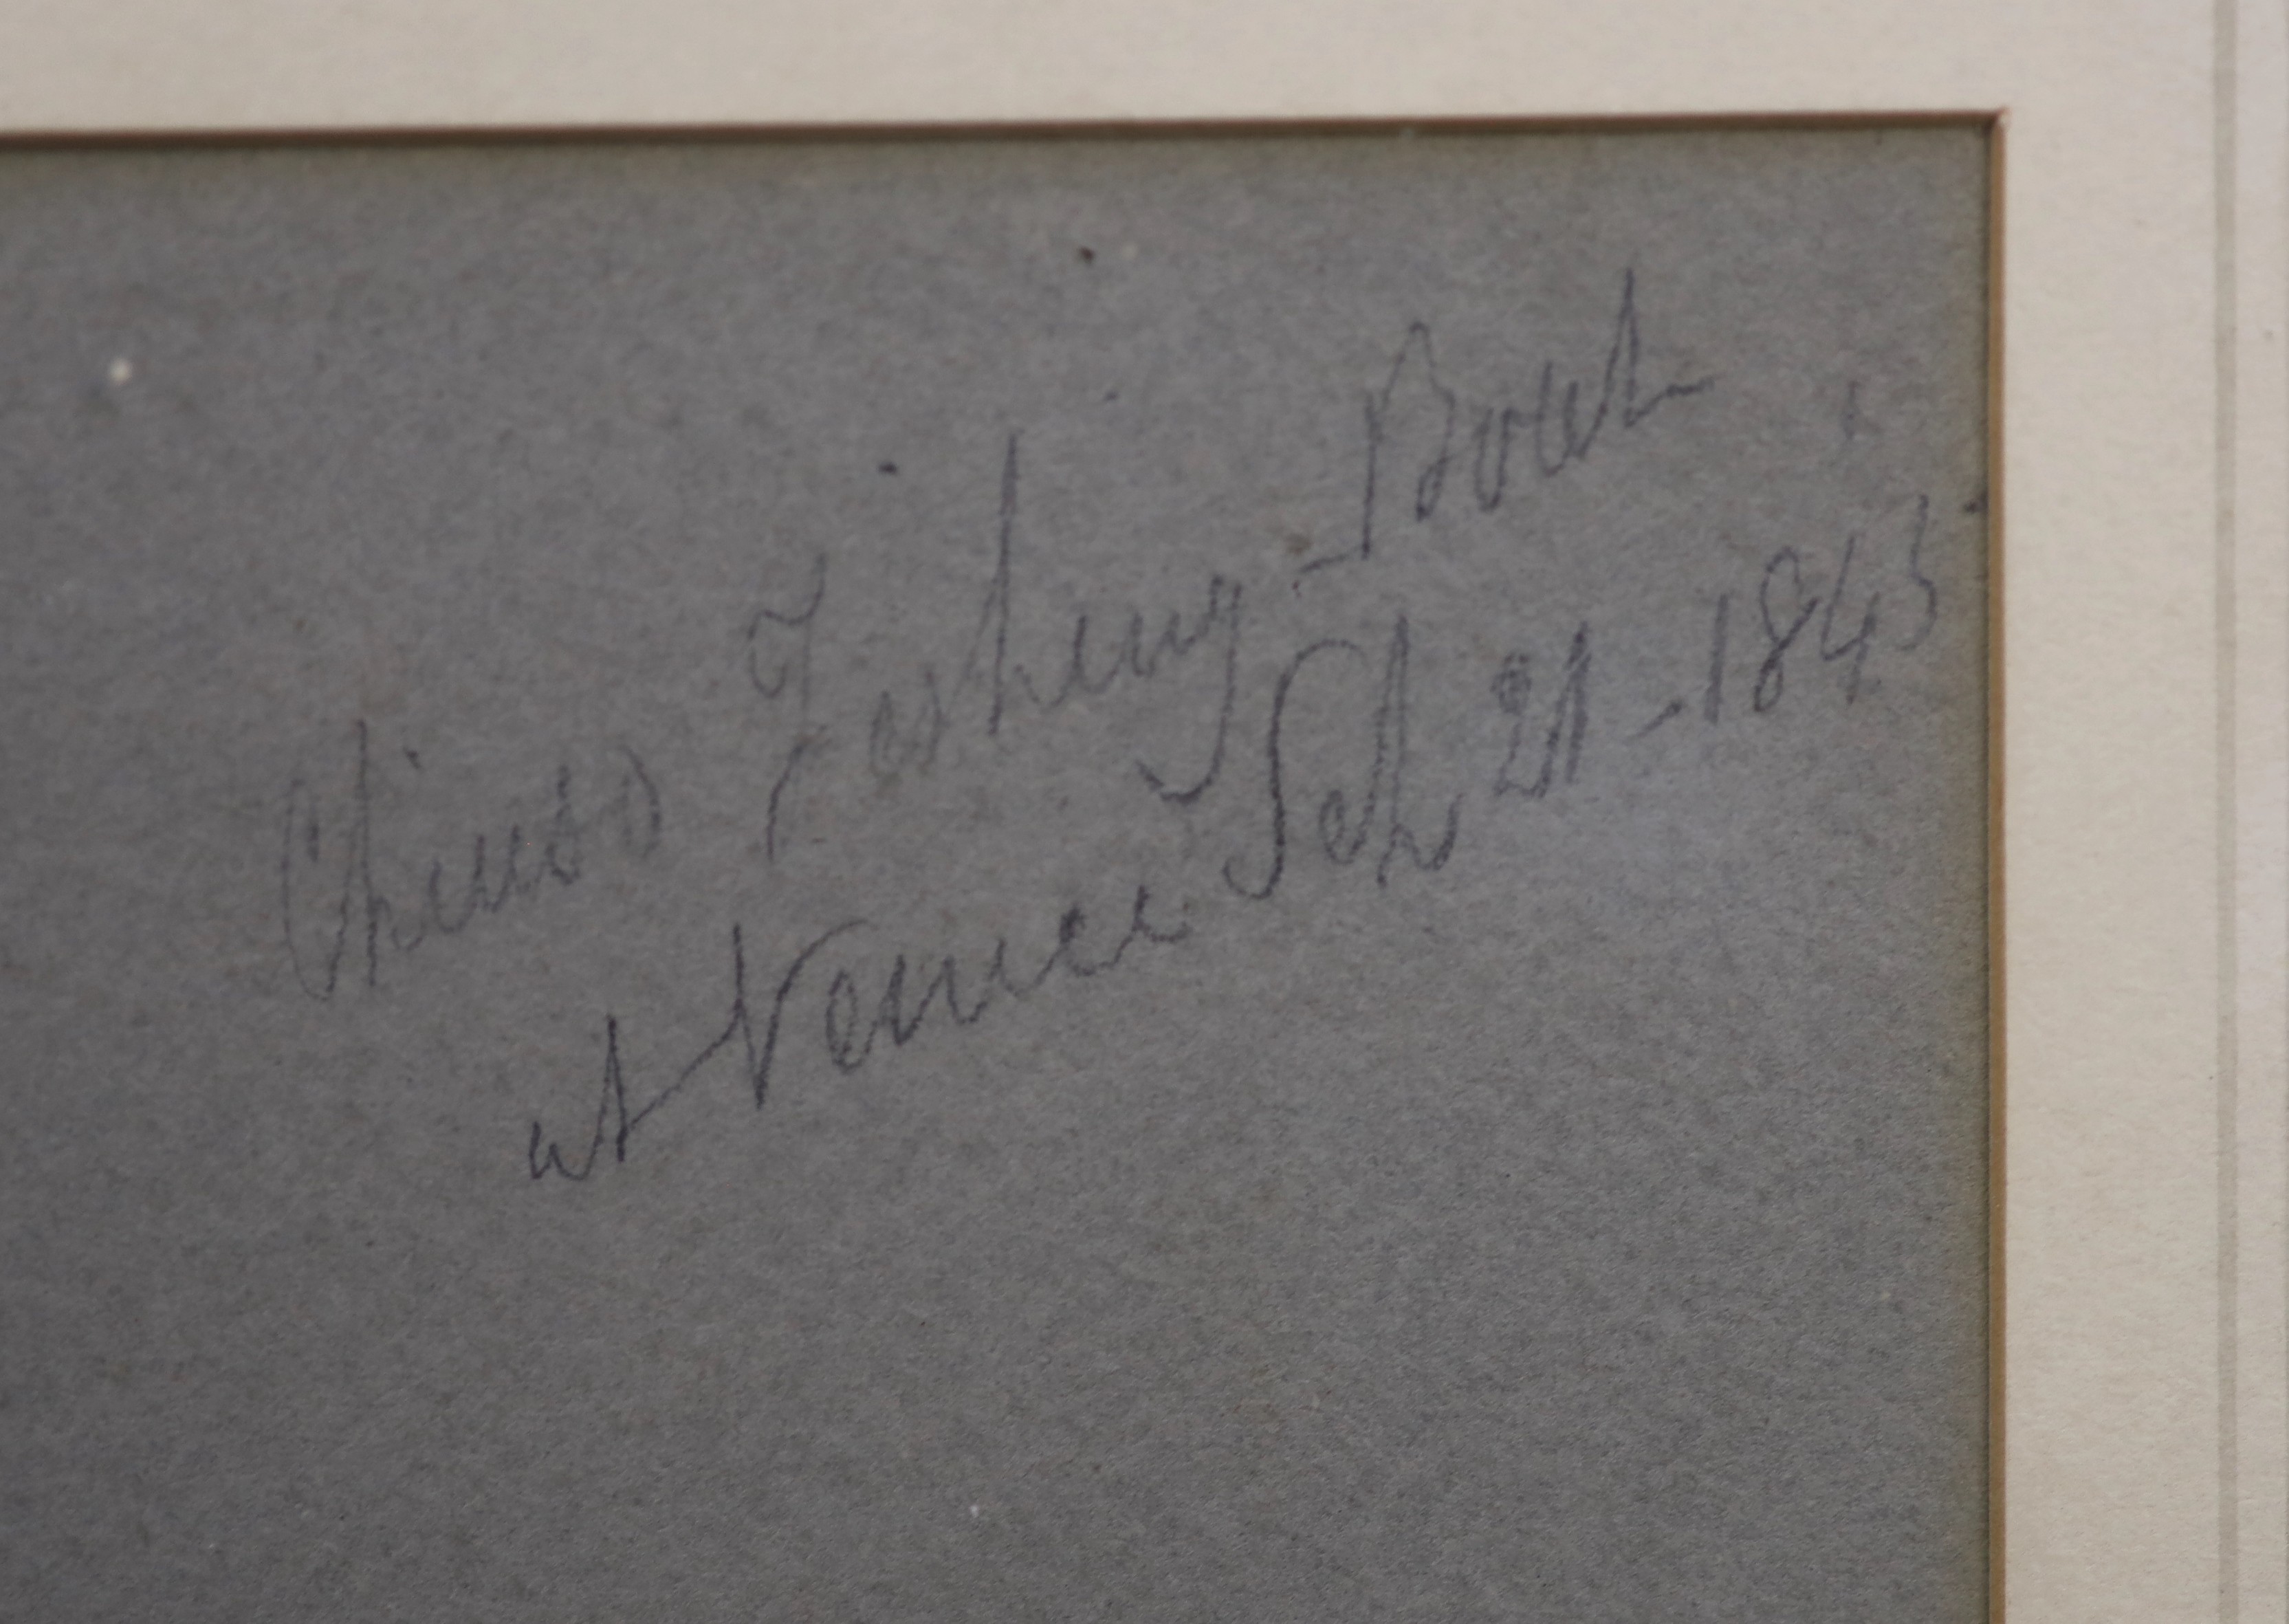 Fishing Boat
at Venice Sep 21 - 1843